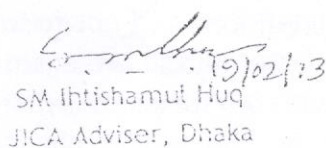 19/02/13
SM Ihtishamul Huq
JICA Adviser, Dhaka